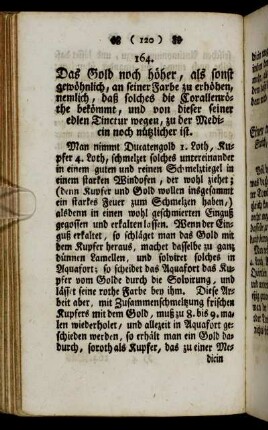 ( 120 )
164.
Das Gold noch höher, als sonst
gewöhnlich, an seiner Farbe zu erhöhen,
nemlich, daß solches die Corallenrö-
the bekömmt, und von dieser seiner
edlen Tinctur wegen, zu der Medi-
cin noch nützlicher ist.
Man nimmt Ducatengold 1. Loth, Ku-
pfer 4. Loth, schmelzet solches untereinander
in einem guten und reinen Schmelztiegel in
einem starken Windofen, der wohl ziehet;
(denn Kupfer und Gold wollen insgesammt
ein starkes Feuer zum Schmelzen haben,)
alsdenn in einen wohl geschmierten Einguß
gegossen und erkalten lassen. Wenn der Ein-
guß erkaltet, so schläget man das Gold mit
dem Kupfer heraus, machet dasselbe zu ganz
dünnen Lamellen, und solviret solches in
Aquafort; so scheidet das Aquafort das Ku-
pfer vom Golde durch die Solvirung, und
lässet seine rothe Farbe bey ihm. Diese Ar-
beit aber, mit Zusammenschmeltzung frischen
Kupfers mit dem Gold, muß zu 8. bis 9. ma-
len wiederholet, und allezeit in Aquafort ge-
schieden werden, so erhält man ein Gold da-
durch, so roth als Kupfer, das zu einer Me-
dicin